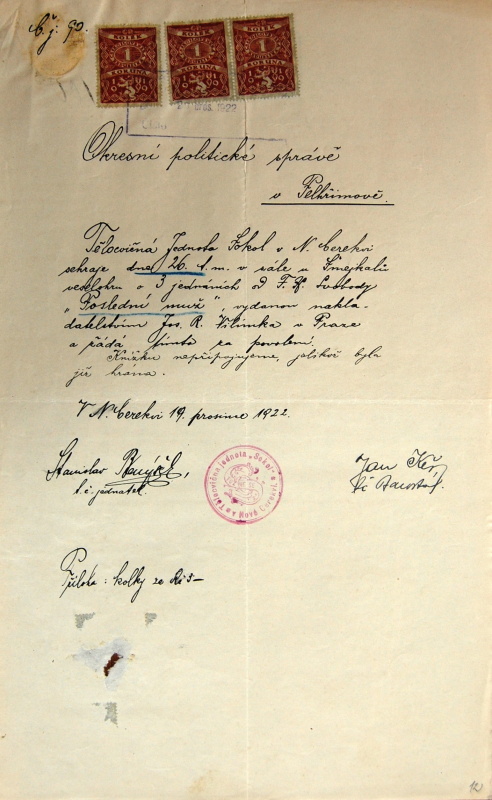 č. j. 90.
KOLEK
1
KORUNA
KOLEK
1
KORUNA
KOLEK
1
KORUNA
1922
Okresní politické správě
v Pelhřimově.
Tělocvičná Jednota Sokol v N. Cerekvi
sehraje dne 26. t. m. v sále u Šmejkalů
veselohru o 3 jednáních od F. X. Svobody
"Poslední muž", vydanou nakla-
datelstvím Jos. R. Vilímka v Praze
a žádá tímto za povolení.
Knížku nepřipojujeme, jelikož byla
již hrána.
V N. Cerekvi 19. prosince 1922.
Stanislav
t. č. jednatel.
Tělocvičná jednota „Sokol“ v Nové Cerekvi
Jan
t. č. starosta
Příloha: kolky za Kč 3–
12